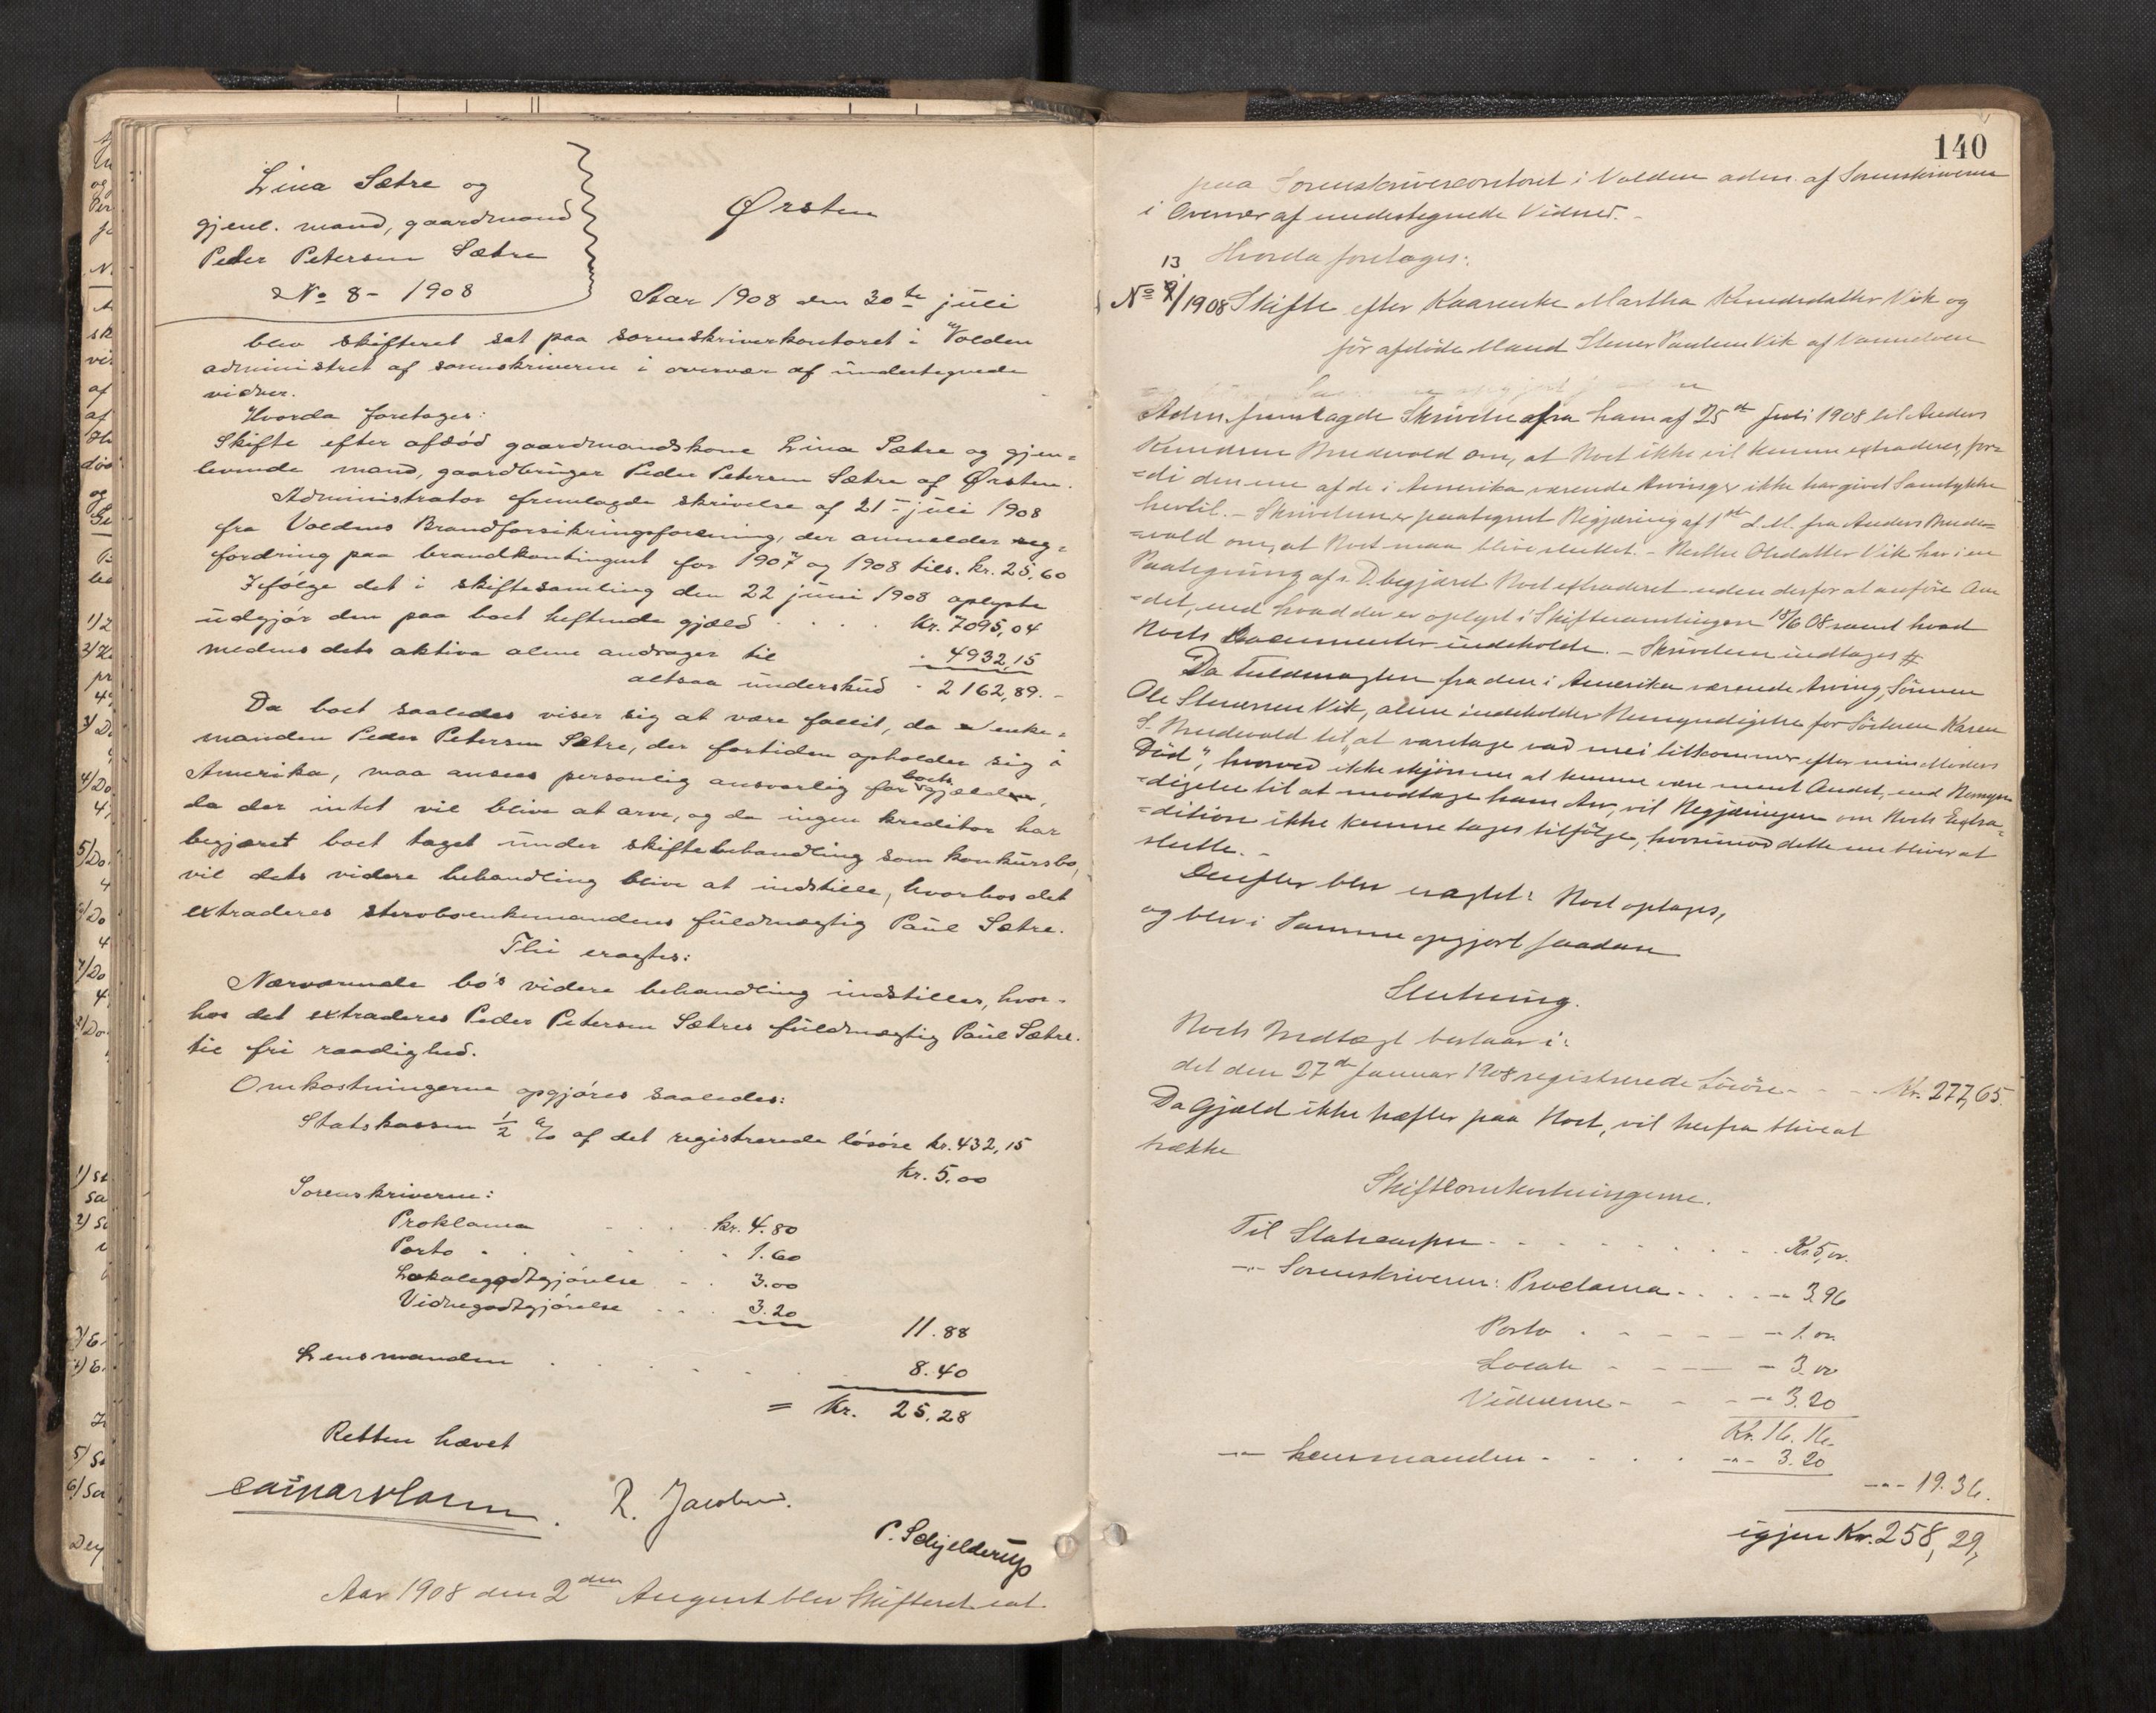 Lina Sætre og
gjenl. mand, gaardmand
Peder Petersen Sætre
No 8 - 1908
Ørsten
Aar 1908 den 30te juli
blev skifteret sat paa sorenskriverkontoret i Volden
administret af sorenskriveren i overvær af undertegnede
vidner.
Hvorda foretages:
Skifte efter afdød gaardmandskone Lina Sætre og gjen=
levende mand, gaardbruger Peder Petersen Sætre af Ørsten.
Administrator fremlagde skrivelse af 21 juli 1908
fra Voldens Brandforsikringsforening, der anmelder
fordring paa brandkontingent for 1907 og 1908 tils. kr. 25,60
Ifølge det i skiftesamling den 22 juni 1908 oplyste
udgjør den paa boet heftende gjæld . . . . kr. 7095,04
medens dets aktiva alene andrager til . 4932,15
altsaa underskud . 2162,89. -
Da boet saaledes viser sig at være fallit, da enke=
manden Peder Petersen Sætre, der fortiden opholder sig i
Amerika, maa ansees personlig ansvarlig for boets gjæld,
da der intet vil blive at arve, og da ingen kreditor har
begjæret boet taget under skiftebehandling som konkursbo,
vil dets videre behandling blive at indstille, hvorhos det
extraderes sterboenkemandens fuldmægtig Paul Sætre.
Thi eragtes:
Nærværende bo's videre behandling indstilles, hvor-
hos det extraderes Peder Petersen Sætres fuldmægtig Paul Sætre.
til fri raadighed.
Omkostningerne opgjøres saaledes:
Statskassen ½ % af det registrerede løsøre kr. 432,15
kr. 5.00
Sorenskriveren:
Proklama . . . kr. 4.80
Porto . . . . . 1.60
Lokalegodtgjørelse . . 3.00
Vidnegodtgjørelse . . . 3.20
11.88
Lensmanden . . . . . 8.40
= Kr. 25.28
Retten hævet
R. Jacobsen.
P. Schjelderup
Aar 1908 den 2den August blev Skifteret sat
140
paa Sorenskrivercontoret i Volden adm. af Sorenskriveren
i Overvær af undertegnede Vidner. -
Hvorda foretages:
13
No /1908 Skifte efter Martha Knudsdatter Vik og
før afdøde Mand Stener Paulsen Vik af Vannelven
Adm. fremlagde Skrivelse fra ham af 25de Juli 1908 til Anders
Knudsen Bredvold om, at Boet ikke vil kunne extraderes, for=
=di den ene af de i Amerika værende Arvinger ikke har givet Samtykke
hertil. - Skrivelsen er paategnet Begjæring af 1ste d. M. fra Anders Brude=
=vold om, at Boet maa blive sluttet. - Olsdatter Vik har i en
Paategning af s. D. begjæret Boet extraderet uden derfor at anføre An
=det, end hvad der er oplyst i Skiftesamlingen 18/6 08 samt hvad
Boets Documenter indeholde. - Skrivelsen indtages #
Da Fuldmagten fra den i Amerika værende Arving, Sønnen
Ole Stenersen Vik, alene indeholder Bemyndigelse for Søsteren Karen
S. Brudevold til "at varetage vad mei tilkommer efter min Moders
Død", hvorved ikke skjønnes at kunne være ment Andet, end Bemyn
=digelse til at modtage hans Arv, vil Begjæringen om Boets Extra=
=dition ikke kunne tages tilfølge, hvorimod dette nu bliver at
slutte. -
Derefter blev eragtet: Boet optages,
og blev i Samme opgjort saadan
Slutning.
Boets Indtægt bestaar i:
det den 27de Januar 1908 registrerede Løsøre - - - Kr. 277,65.
Da Gjæld ikke hæfter paa Boet, vil herfra blive at
trække
Skifteomkostningerne.
Til Statscassen - - - - - - Kr. 5,00.
-"- Sorenskriveren: Proclama . . . -"- 3.96
Porto . - - - - - 1.00
Locale - - - - - 3.00
Vidnerne - - - -"- 3.20
Kr. 16.16.
-"- Lensmanden - . . . -"- 3.20
-"- 19.36.
igjen Kr. 258,29,